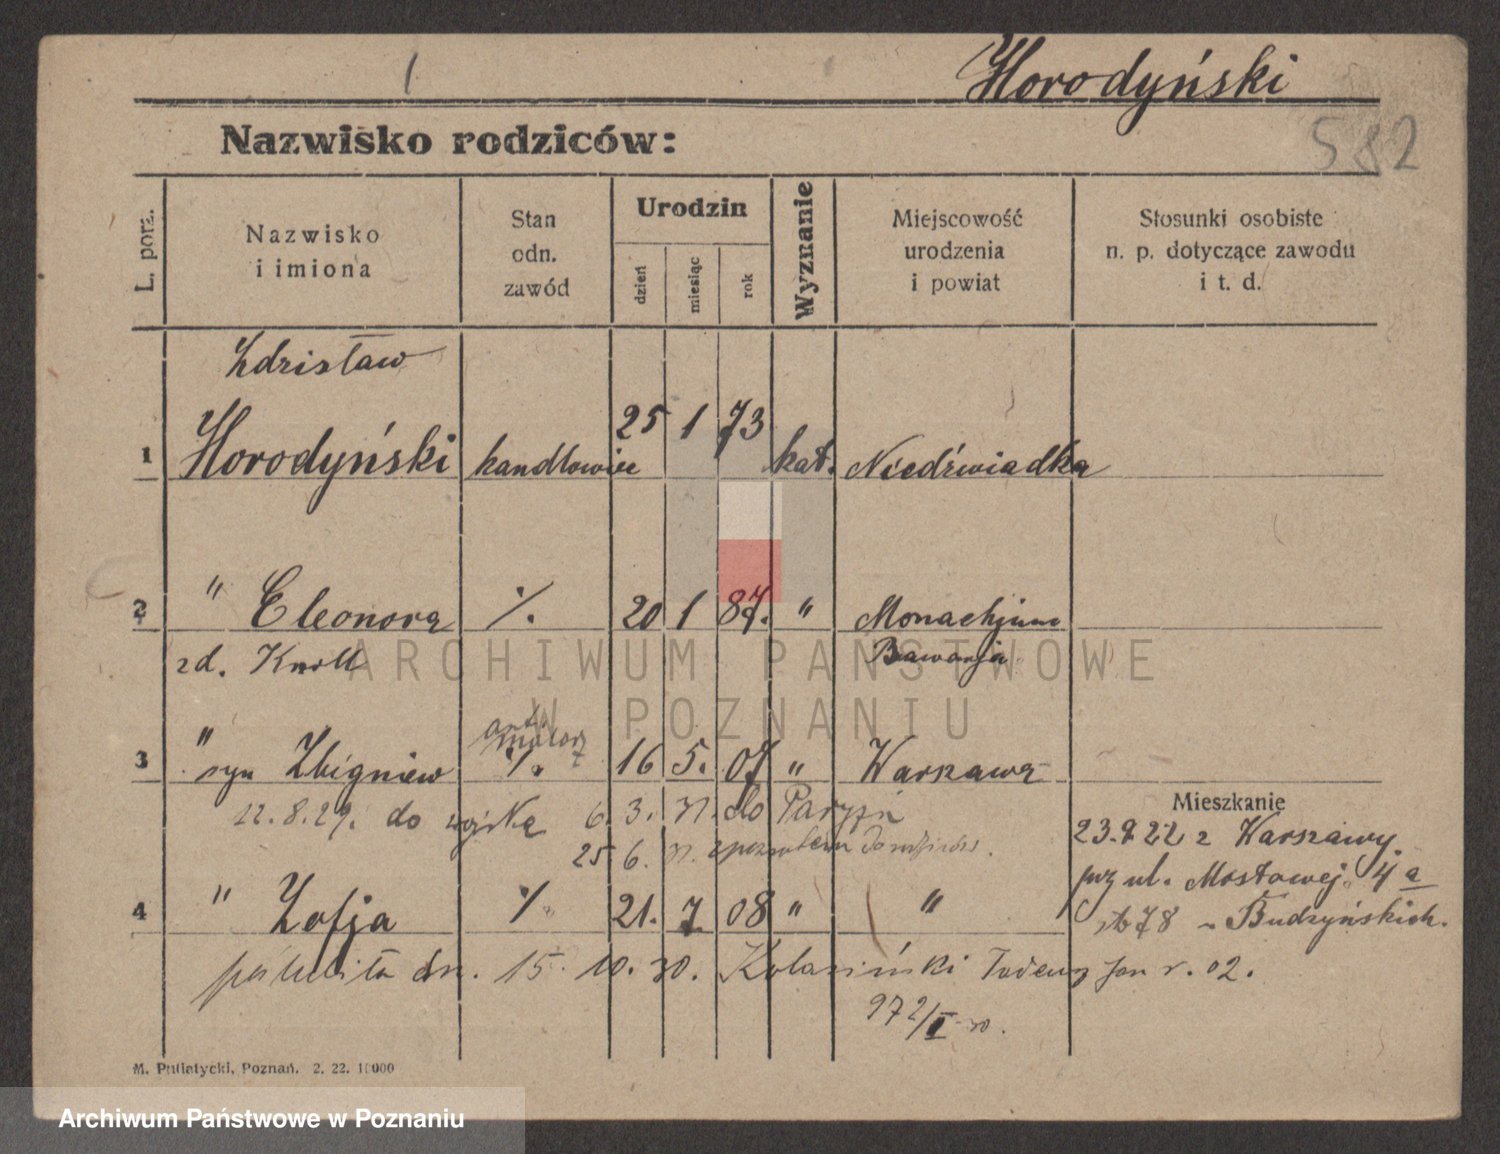 Horodyński
582
Nazwisko rodziców:
L. porz.
Nazwisko
i imiona
Stan
odn.
zawód
Urodzin
dzień
miesiąc
rok
Wyznanie
Miejscowość
urodzenia
i powiat
Stosunki osobiste
n. p. dotyczące zawodu
i t. d.
Zdzisław
1 Horodyński handlowiec 25 1 73 kat. Niedźwiadka
2 " Eleonora %. 20 1 87. " Monachjum
zd. Knoll Bawarja
3 " syn Zbigniew %. 16 5. 07 " Warszawa
Mieszkanie
22.8.29. do wojska 6. 3. 31. do Paryża
23.9.22 z Warszawy
25 6. 31. z powrotem do rodziców.
przy ul. Mostowej 4a
4 " Zofja %. 21. 7. 08 " "
78 - Budzyńskich.
poślubiła dn. 15. 10. 30. Kolasiński Tadeusz Jan r. 02.
972/I-30.
M. Putiatycki, Poznań. 2. 22. 10000
ARCHIWUM PAŃSTWOWE
W POZNANIU
Archiwum Państwowe w Poznaniu